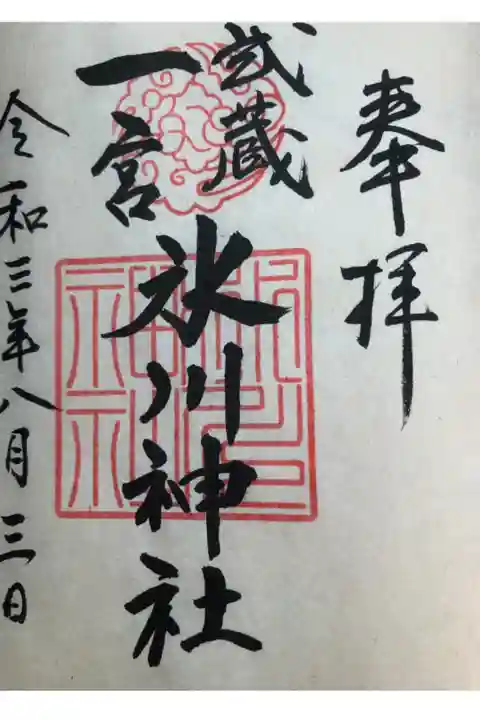 奉拝
武蔵
一宮
氷川神社
令和三年八月三日